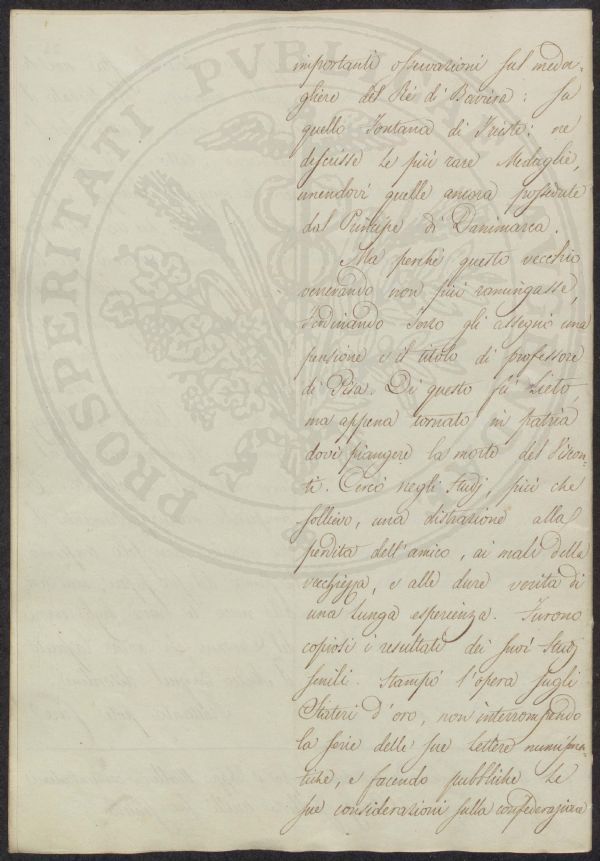 importanti osservazioni sul meda-
gliere del Rè di Baviera: fa
quello Fontana di Trieste: nè
descrisse le più rare Medaglie,
unendovi quelle ancora possedute
dal Principe di Danimarca.
Ma perchè questo vecchio
venerando non più ramingasse,
Ferdinando Terzo gli assegnò una
pensione e il titolo di professore
di Pisa. Di questo fù lieto,
ma appena tornato in patria
dovè piangere la morte del Viscon-
ti. Cercò negli Studj, più che
sollievo, una distrazione alla
perdita dell'amico, ai mali della
vecchiezza, e alle dure verità di
una lunga esperienza. Furono
copiosi i resultati dei suoi Studj
senili. Stampò l'opera sugli
Stateri d'oro, non interrompendo
la serie delle sue lettere numisma-
tiche, e facendo pubbliche le
sue considerazioni sulla confederazione
PROSPERITATI PUBLICAE